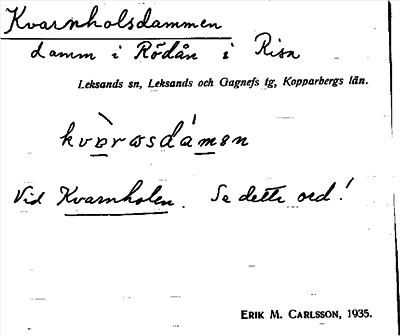 Kvarnholsdammen
damm i Rödån i Risa
Leksands sn, Leksands och Gagnefs tg, Kopparbergs län.
kvàrosdámen
Vid Kvarnholen. Se detta ord!
ERIK M. CARLSSON, 1935.